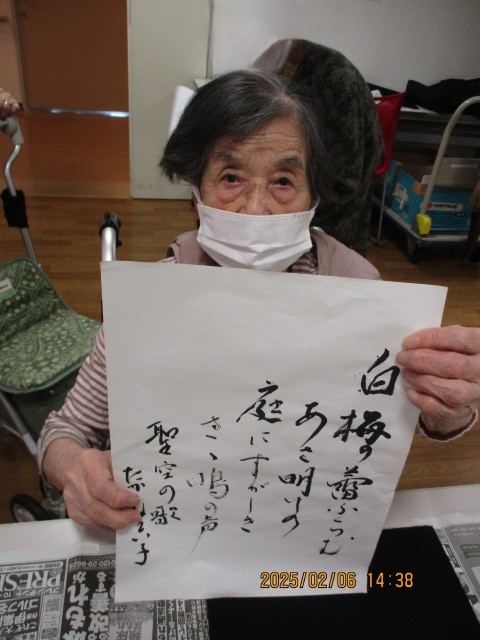 白梅の蕾ふくらむ
あさ明けの
庭にすがしき
さゝ鳴の声
聖空の歌
PRES
改善する
2025/02/06 14:38